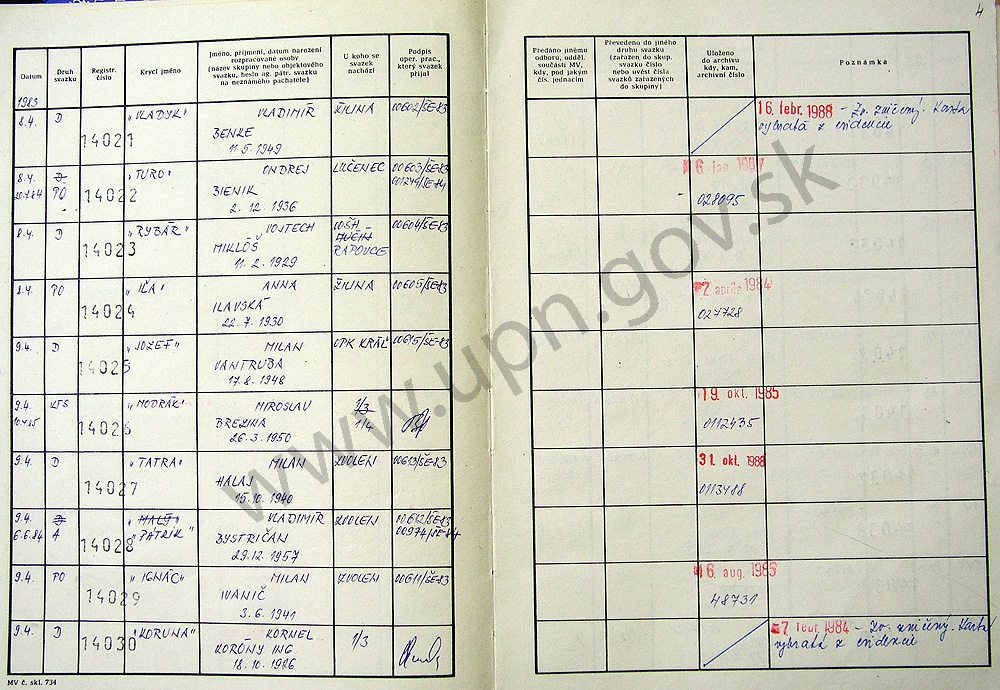 4
Datum
Druh svazku
Registr. číslo
Krycí jméno
Jméno, příjmení, datum narození
rozpracované osoby
(název skupiny nebo objektového
svazku, heslo ag. pátr. svazku
na neznámého pachatele)
U koho se
svazek
nachází
Podpis
oper. prac.,
který svazek
přijal
Předáno jinému
odboru, odděl.
součásti MV,
kdy, pod jakým
čís. jednacím
Převedeno do jiného
druhu svazku
(zařazen do skup.
svazku číslo
nebo uvést čísla
svazků zařazených
do skupiny)
Uloženo
do archivu
kdy, kam,
archivní číslo
Poznámka
1983
8.4. D 14021 "VLADYK" VLADIMÍR ŽILINA 00602/ŠE-83
BENKE
11.5.1949
16. febr. 1988 - Zv. zničený. Karta
vybratá z evidencie
8.4. D "TURO" ONDREJ LUČENEC 00603/ŠE-83
PO 14022 BIENIK 001249/ŠE-84
2. 12. 1936
6 jan. 1987
028095
8.4. D 14023 "RYBÁR" VOJTECH OOŠH 00604/ŠE-83
MIKLÓŠ RAPOVCE
11. 2. 1929
8.4. PO 14024 "IĽA" ANNA ŽILINA 00605/ŠE-83
ILAVSKÁ
22. 7. 1930
2 apríla 1984
027728
9.4. D 14025 "JOZEF" MILAN OPK KRÁĽ 00615/ŠE-83
VANTRUBA
17. 8. 1948
9.4. 14026 "MODRÁK" MIROSLAV 1/3
BREZINA 1/4
26. 3. 1950
19. okt. 1985
0112435
9.4. D 14027 "TATRA" MILAN ZVOLEN 00613/ŠE-83
HALAJ
15. 10. 1940
31. okt. 1988
0113488
9.4. D "MALÝ" VLADIMÍR ZVOLEN 00612/ŠE-83
6.6.84 A 14028 "PÁTRIK" BYSTRIČAN 00974/ŠE-84
29. 12. 1957
9.4. PO 14029 "IGNÁC" MILAN ZVOLEN 00611/ŠE-83
IVANIČ
3. 6. 1941
16. aug. 1985
48731
9.4. D 14030 "KORUNA" KORNEL 1/3
KORÓNY ING.
18. 10. 1926
7 febr. 1984 - Zv. zničený. Karta
vybratá z evidencie
MV č. skl. 734
www.upn.gov.sk